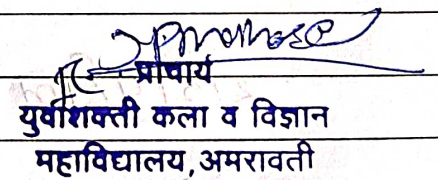 प्राचार्य
युवाशक्ती कला व विज्ञान
महाविद्यालय, अमरावती